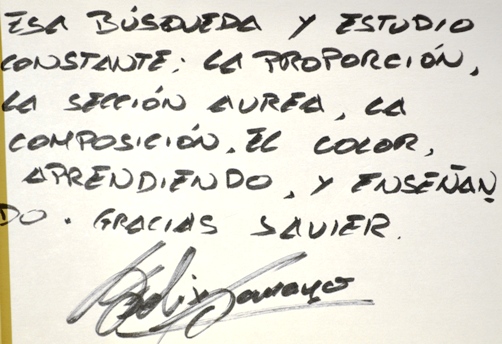 ESA BÚSQUEDA Y ESTUDIO
CONSTANTE; LA PROPORCIÓN,
LA SECCIÓN AUREA, LA
COMPOSICIÓN, EL COLOR,
APRENDIENDO, Y ENSEÑAN
DO. GRACIAS SAVIER.
Félix Samayo